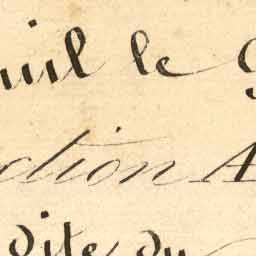 uil le
ction A
dite du